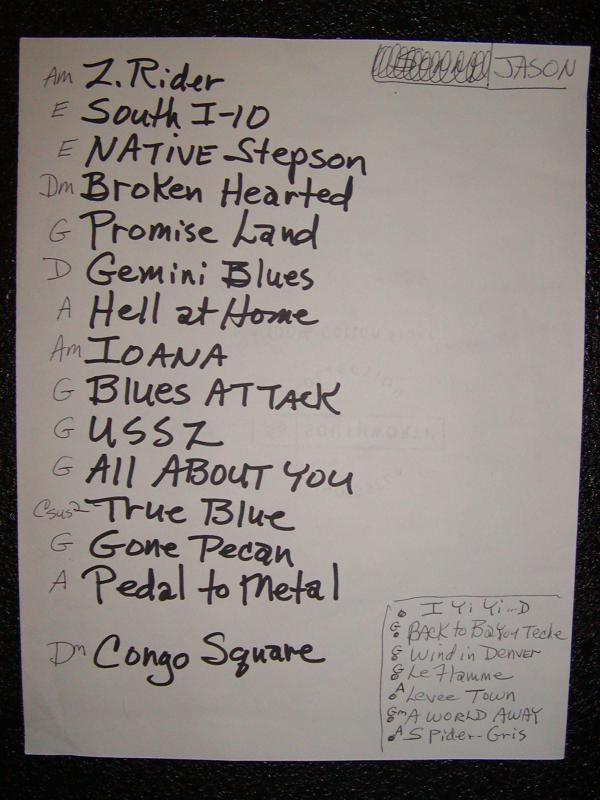 JASON
Am Z. Rider
E South I-10
E NATIVE Stepson
Dm Broken Hearted
G Promise Land
D Gemini Blues
A Hell at Home
Am IOANA
G Blues ATTACK
G USSZ
G All ABOUT YOU
Csus2 True Blue
G Gone Pecan
A Pedal to Metal
Dm Congo Square
I Yi Yi...D
G BACK to Bayou Teche
G Wind in Denver
G Le Flamme
A Levee Town
Gm A WORLD AWAY
A Spider-Gris